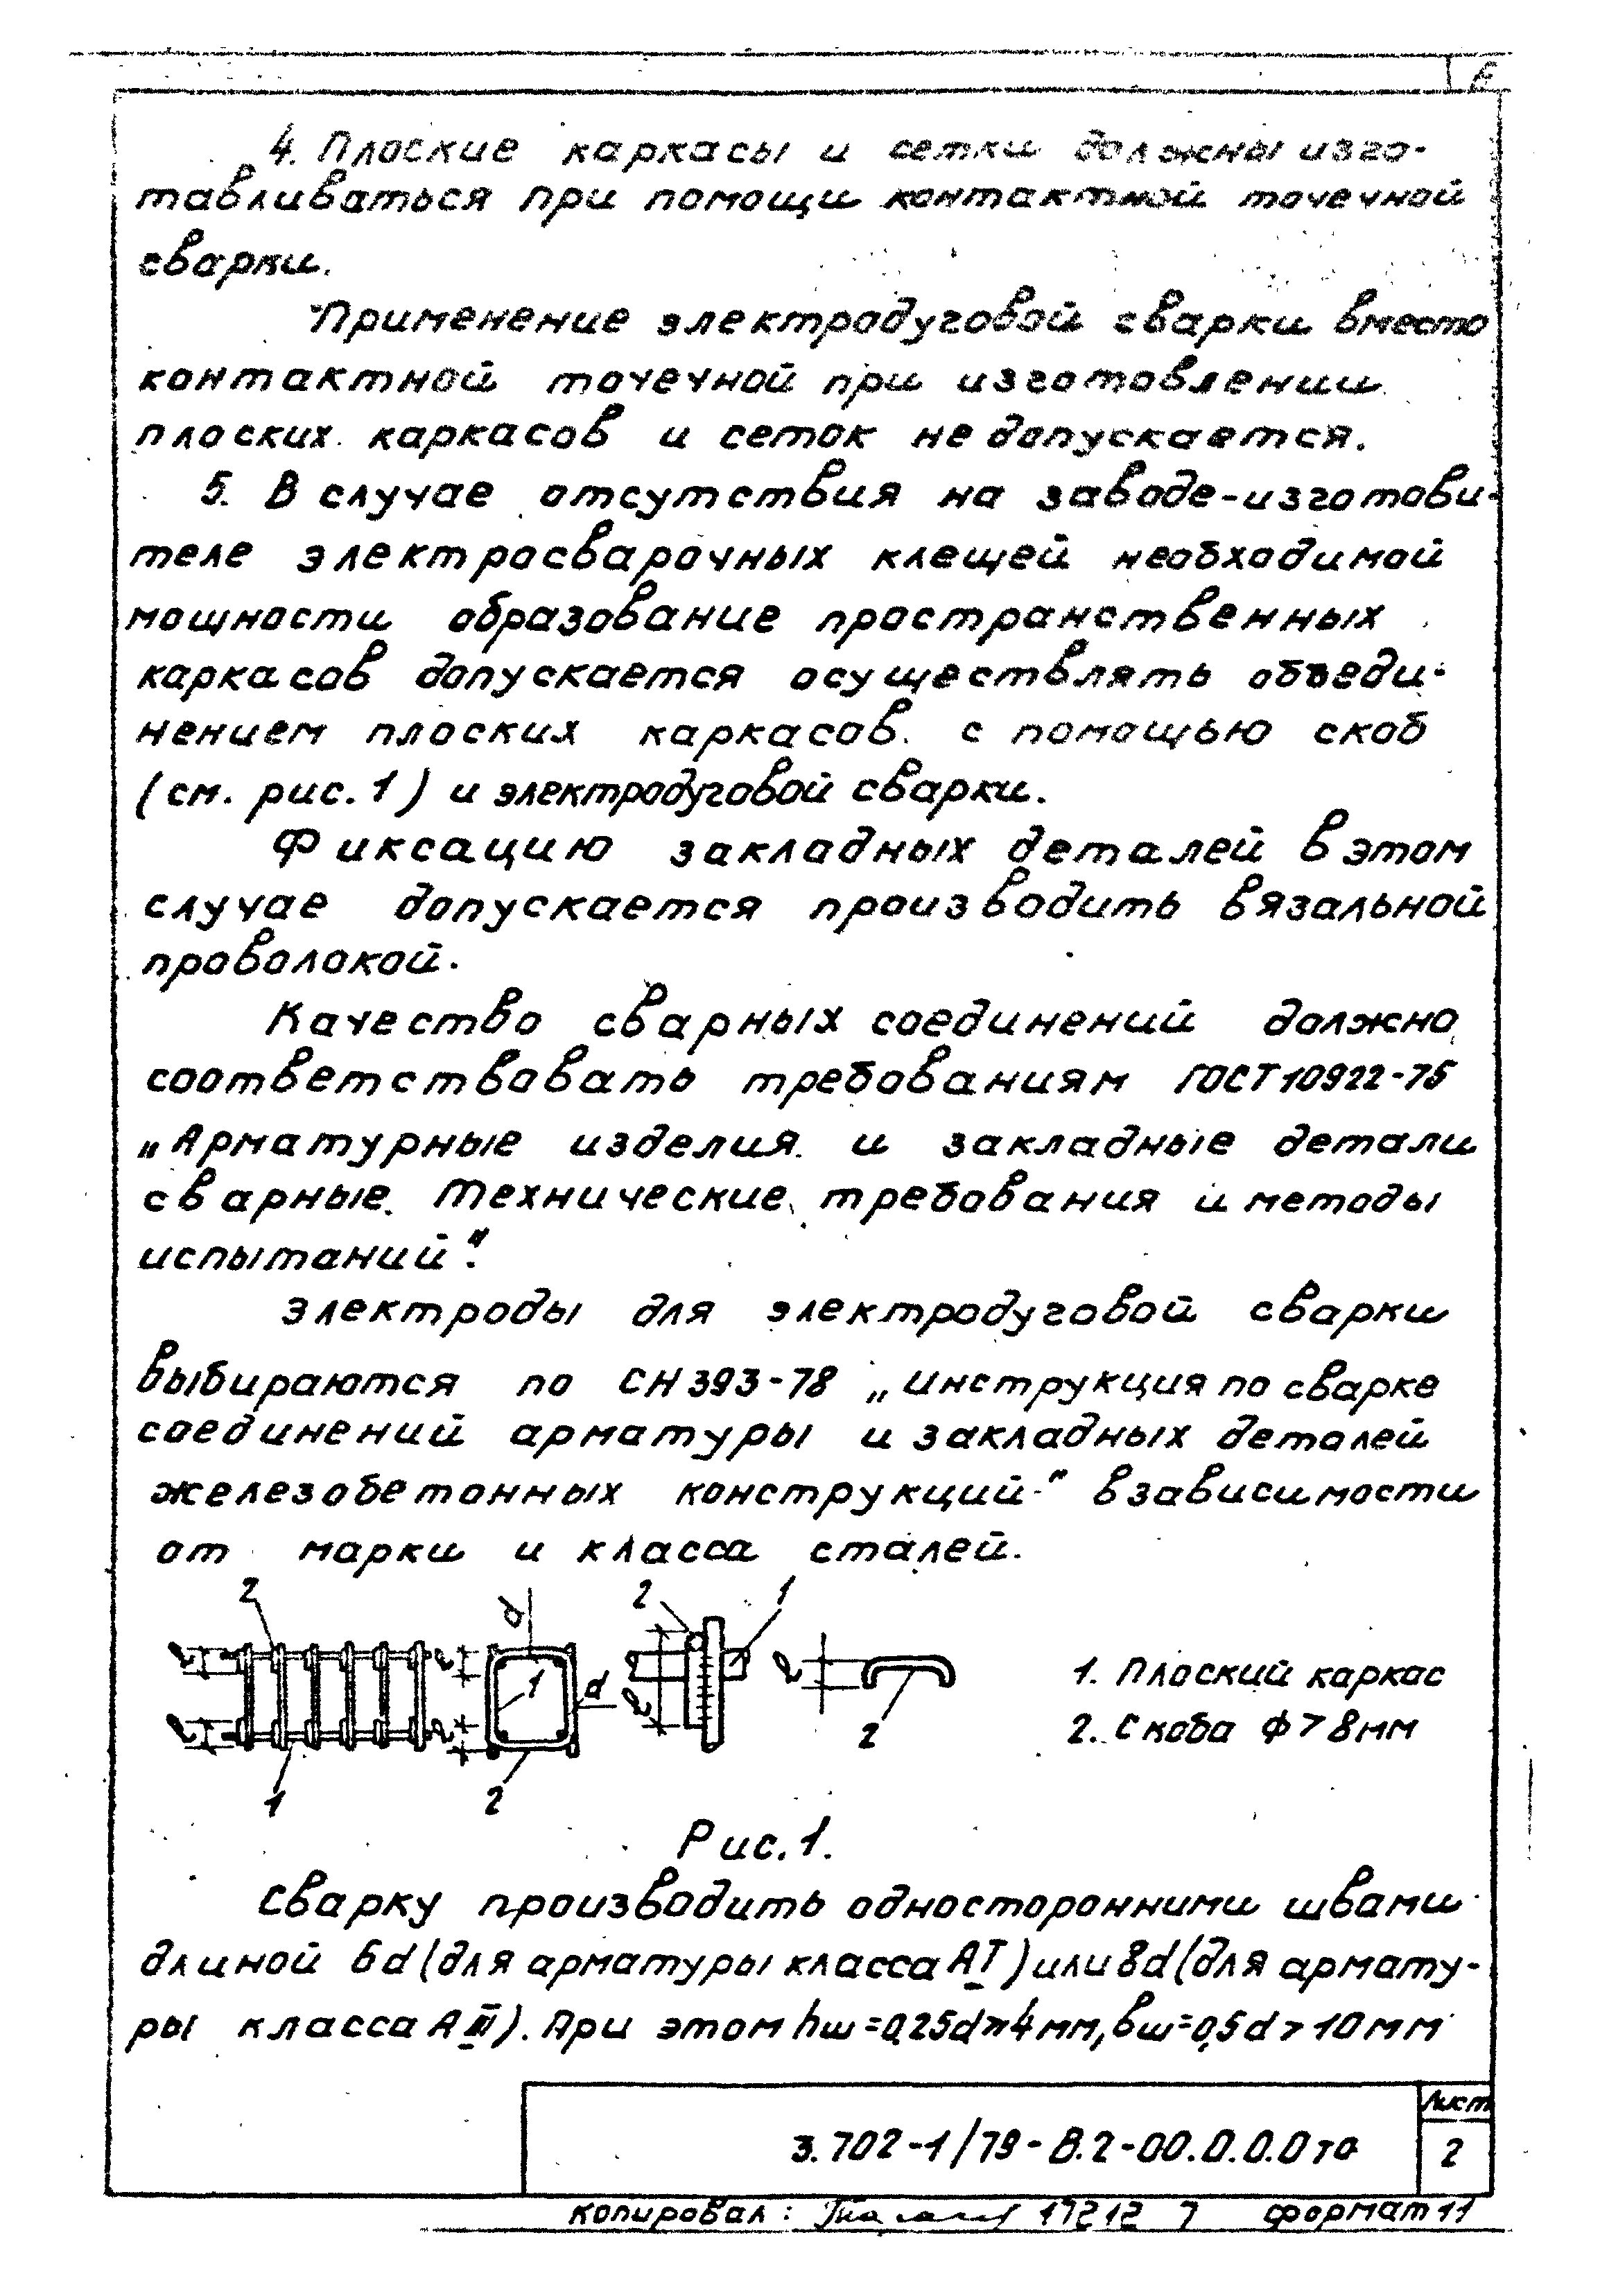 6
4. Плоские каркасы и сетки должны изго-
тавливаться при помощи контактной точечной
сварки.
Применение электродуговой сварки вместо
контактной точечной при изготовлении
плоских каркасов и сеток не допускается.
5. В случае отсутствия на заводе-изготови-
теле электросварочных клещей необходимой
мощности образование пространственных
каркасов допускается осуществлять объеди-
нением плоских каркасов с помощью скоб
(см. рис. 1) и электродуговой сварки.
Фиксацию закладных деталей в этом
случае допускается производить вязальной
проволокой.
Качество сварных соединений должно
соответствовать требованиям ГОСТ 10922-75
„Арматурные изделия и закладные детали
сварные. Технические требования и методы
испытаний".
Электроды для электродуговой сварки
выбираются по СН 393-78 „Инструкция по сварке
соединений арматуры и закладных деталей
железобетонных конструкций" в зависимости
от марки и класса сталей.
2 d 2 1
1 d
1. Плоский каркас
2. Скоба ф > 8мм
2
1 2
Рис. 1.
Сварку производить односторонними швами
длиной 6d (для арматуры класса АI) или 8d (для армату-
ры класса АIII). При этом hш = 0,25d ≥ 4мм, bш = 0,5d > 10мм
3.702-1/79-В.2-00.0.0.0то
Лист
2
копировал: 17212 7 формат 11